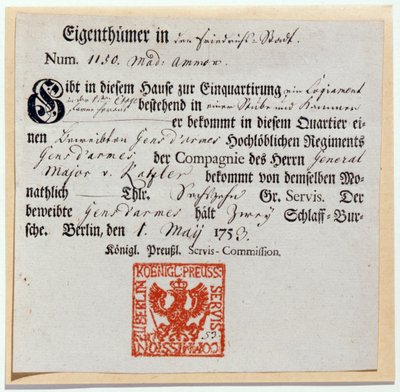 Eigenthümer in den Friedrichs-Stadt.
Num. 1150. Mad: Ammon.
Gibt in diesem Hause zur Einquartirung ein Logiament
in der Etage
bestehend in einer Stube und Kammer
er bekommt in diesem Quartier ei-
nen beweibten Gens d'armes Hochlöblichen Regiments
Gens d'armes, der Compagnie des Herrn General
Major v. Katzler bekommt von demselben Mo-
nathlich — Thlr. Sechszehn Gr. Servis. Der
beweibte Gens d'armes hält Zwey Schlaff-Bur-
sche. Berlin, den 1. May 1753.
Königl. Preußl. Servis-Commission.
KOENIGL·PREUSS·SERVIS COMMISSION ZU BERLIN
53.